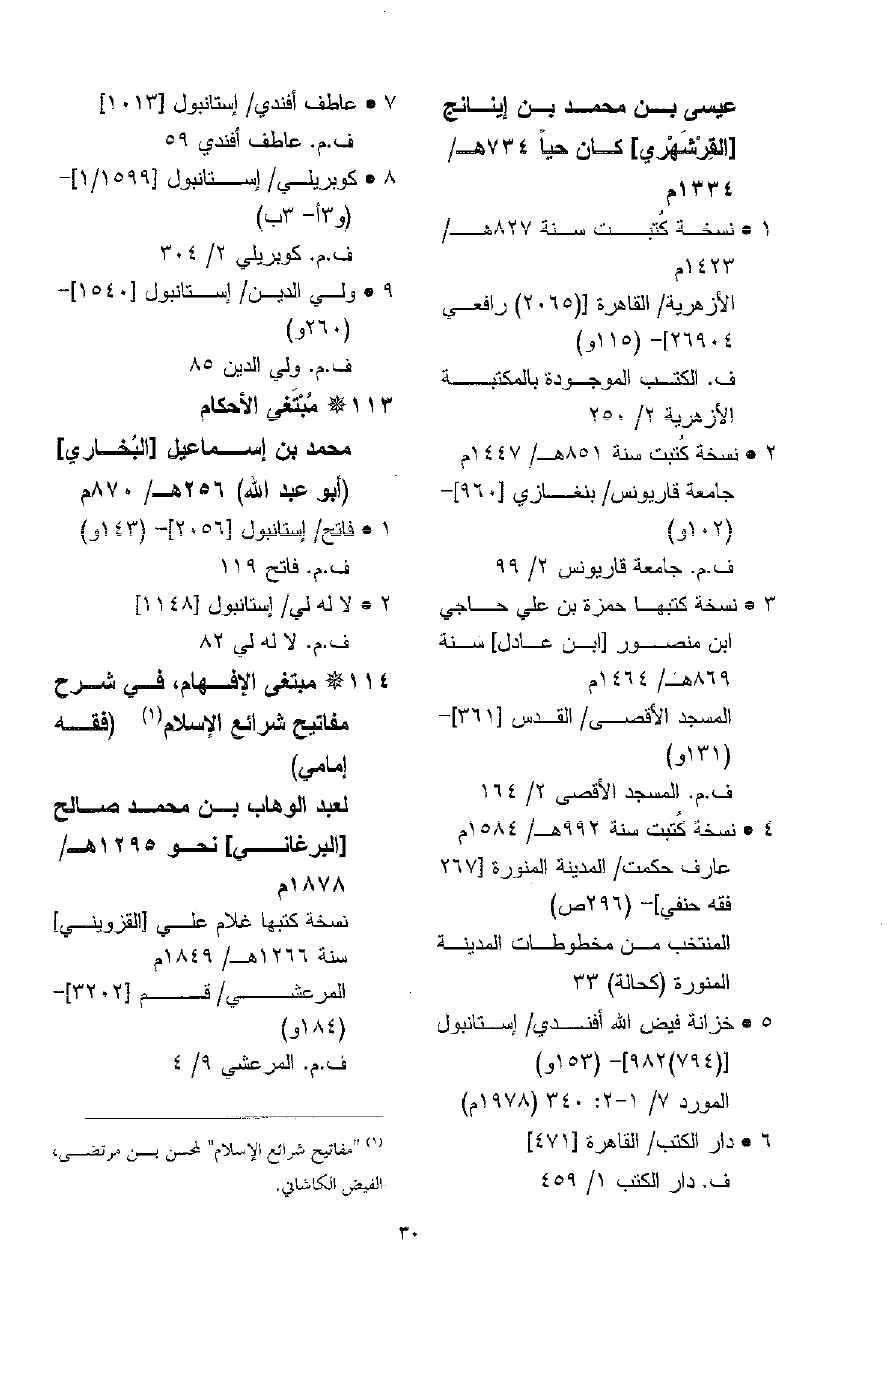 عيسى بن محمد بن إينانج
[القِرْشَهْري] كان حياً ٧٣٤هـ/
١٣٣٤م
١ • نسخة كُتبت سنة ٨٢٧هـ/
١٤٢٣م
الأزهرية/ القاهرة [(٢٠٦٥) رافعي
٢٦٩٠٤]- (١١٥و)
ف. الكتب الموجودة بالمكتبة
الأزهرية ٢/ ٢٥٠
٢ • نسخة كُتبت سنة ٨٥١هـ/ ١٤٤٧م
جامعة قاريونس/ بنغازي [٩٦٠]-
(١٠٢و)
ف.م. جامعة قاريونس ٢/ ٩٩
٣ • نسخة كتبها حمزة بن علي حاجي
ابن منصور [ابن عادل] سنة
٨٦٩هـ/ ١٤٦٤م
المسجد الأقصى/ القدس [٣٦١]-
(١٣١و)
ف.م. المسجد الأقصى ٢/ ١٦٤
٤ • نسخة كُتبت سنة ٩٩٢هـ/ ١٥٨٤م
عارف حكمت/ المدينة المنورة [٢٦٧
فقه حنفي]- (٢٩٦ص)
المنتخب من مخطوطات المدينة
المنورة (كحالة) ٣٣
٥ • خزانة فيض الله أفندي/ إستانبول
[(٧٩٤)٩٨٢]- (١٥٣و)
المورد ٧/ ١-٢: ٣٤٠ (١٩٧٨م)
٦ • دار الكتب/ القاهرة [٤٧١]
ف. دار الكتب ١/ ٤٥٩
٧ • عاطف أفندي/ إستانبول [١٠١٣]
ف.م. عاطف أفندي ٥٩
٨ • كوبريلي/ إستانبول [١/١٥٩٩]-
(و٣أ- ٣ب)
ف.م. كوبريلي ٢/ ٣٠٤
٩ • ولي الدين/ إستانبول [١٥٤٠]-
(٢٦٠و)
ف.م. ولي الدين ٨٥
١١٣ ❋ مُبْتَغى الأحكام
محمد بن إسماعيل [البُخاري]
(أبو عبد الله) ٢٥٦هـ/ ٨٧٠م
١ • فاتح/ إستانبول [٢٠٥٦]- (١٤٣و)
ف.م. فاتح ١١٩
٢ • لا له لي/ إستانبول [١١٤٨]
ف.م. لا له لي ٨٢
١١٤ ❋ مبتغى الإفهام، في شرح
مفاتيح شرائع الإسلام(١) (فقه
إمامي)
لعبد الوهاب بن محمد صالح
[البرغاني] نحو ١٢٩٥هـ/
١٨٧٨م
نسخة كتبها غلام علي [القزويني]
سنة ١٢٦٦هـ/ ١٨٤٩م
المرعشي/ قم [٣٢٠٢]-
(١٨٤و)
ف.م. المرعشي ٩/ ٤
(١) "مفاتيح شرائع الإسلام" لمحسن بن مرتضى،
الفيض الكاشاني.
٣٠